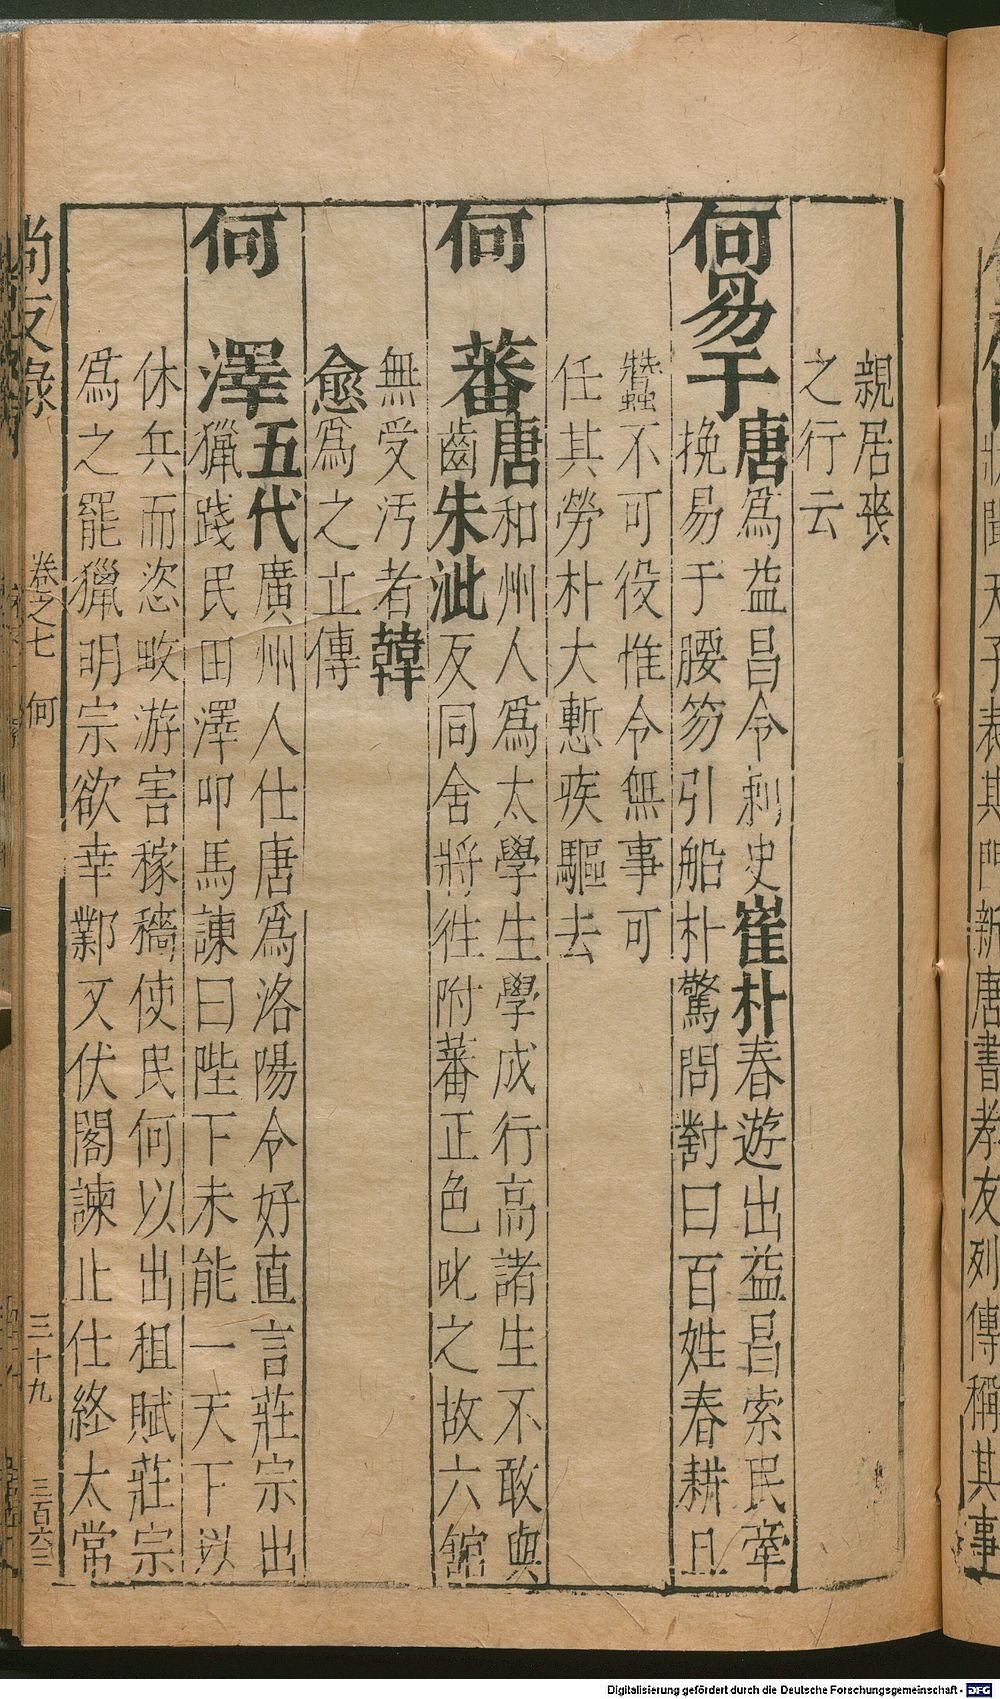 親居喪
之行云
何易于唐為益昌令刺史崔朴春遊出益昌索民牽
挽易于腰笏引船朴驚問對曰百姓春耕且
蠶不可役惟令無事可
任其勞朴大慙疾驅去
何蕃唐和州人為太學生學成行高諸生不敢與
齒朱泚反同舍將往附蕃正色叱之故六館
無受汚者韓
愈為之立傳
何澤五代廣州人仕唐為洛陽令好直言莊宗出
獵踐民田澤叩馬諫曰陛下未能一天下以
休兵而恣畋游害稼穡使民何以出租賦莊宗
為之罷獵明宗欲幸鄴又伏閣諫止仕終太常
尚友錄 卷之七 何 三十九 三百六二
狀聞天子表其門新唐書孝友列傳稱其事
Digitalisierung gefördert durch die Deutsche Forschungsgemeinschaft - DFG